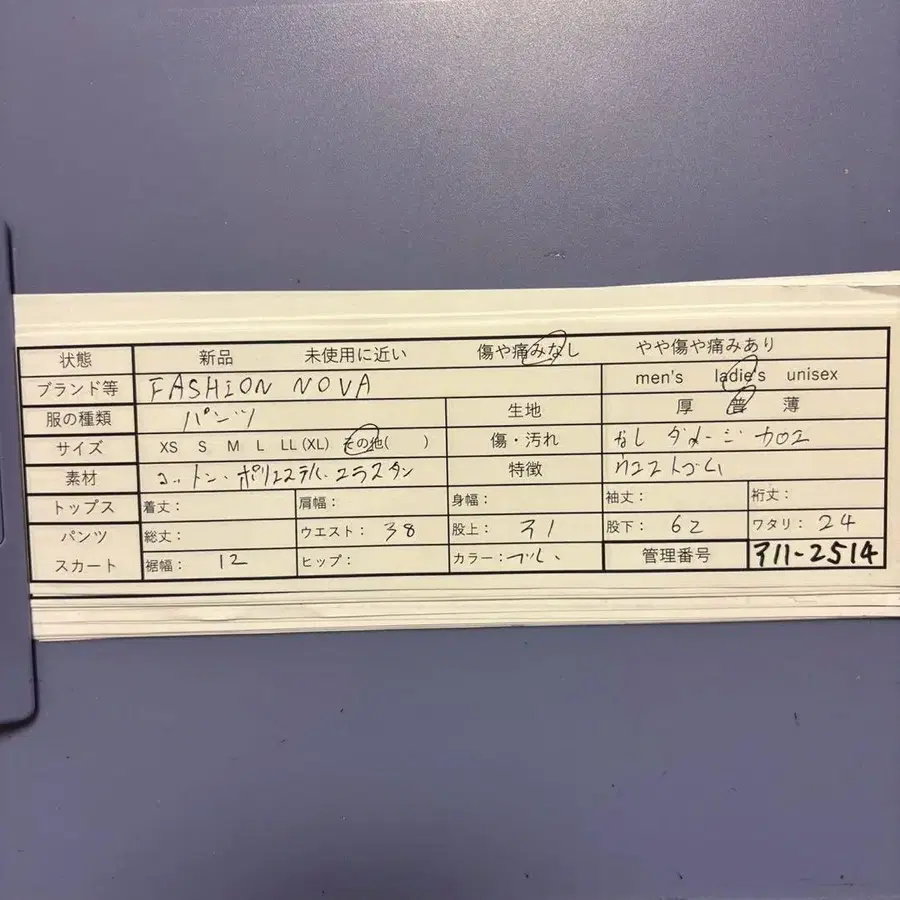 状態 新品 未使用に近い 傷や痛みなし やや傷や痛みあり
ブランド等 FASHION NOVA men's ladie's unisex
服の種類 パンツ 生地 厚 普 薄
サイズ XS S M L LL (XL) その他( ) 傷・汚れ なし ダメージ加工
素材 コットン・ポリエステル・エラスタン 特徴 ウエストゴム
トップス 着丈: 肩幅: 身幅: 袖丈: 裄丈:
パンツ 総丈: ウエスト: 38 股上: 31 股下: 62 ワタリ: 24
スカート 裾幅: 12 ヒップ: カラー: ブルー 管理番号 311-2514